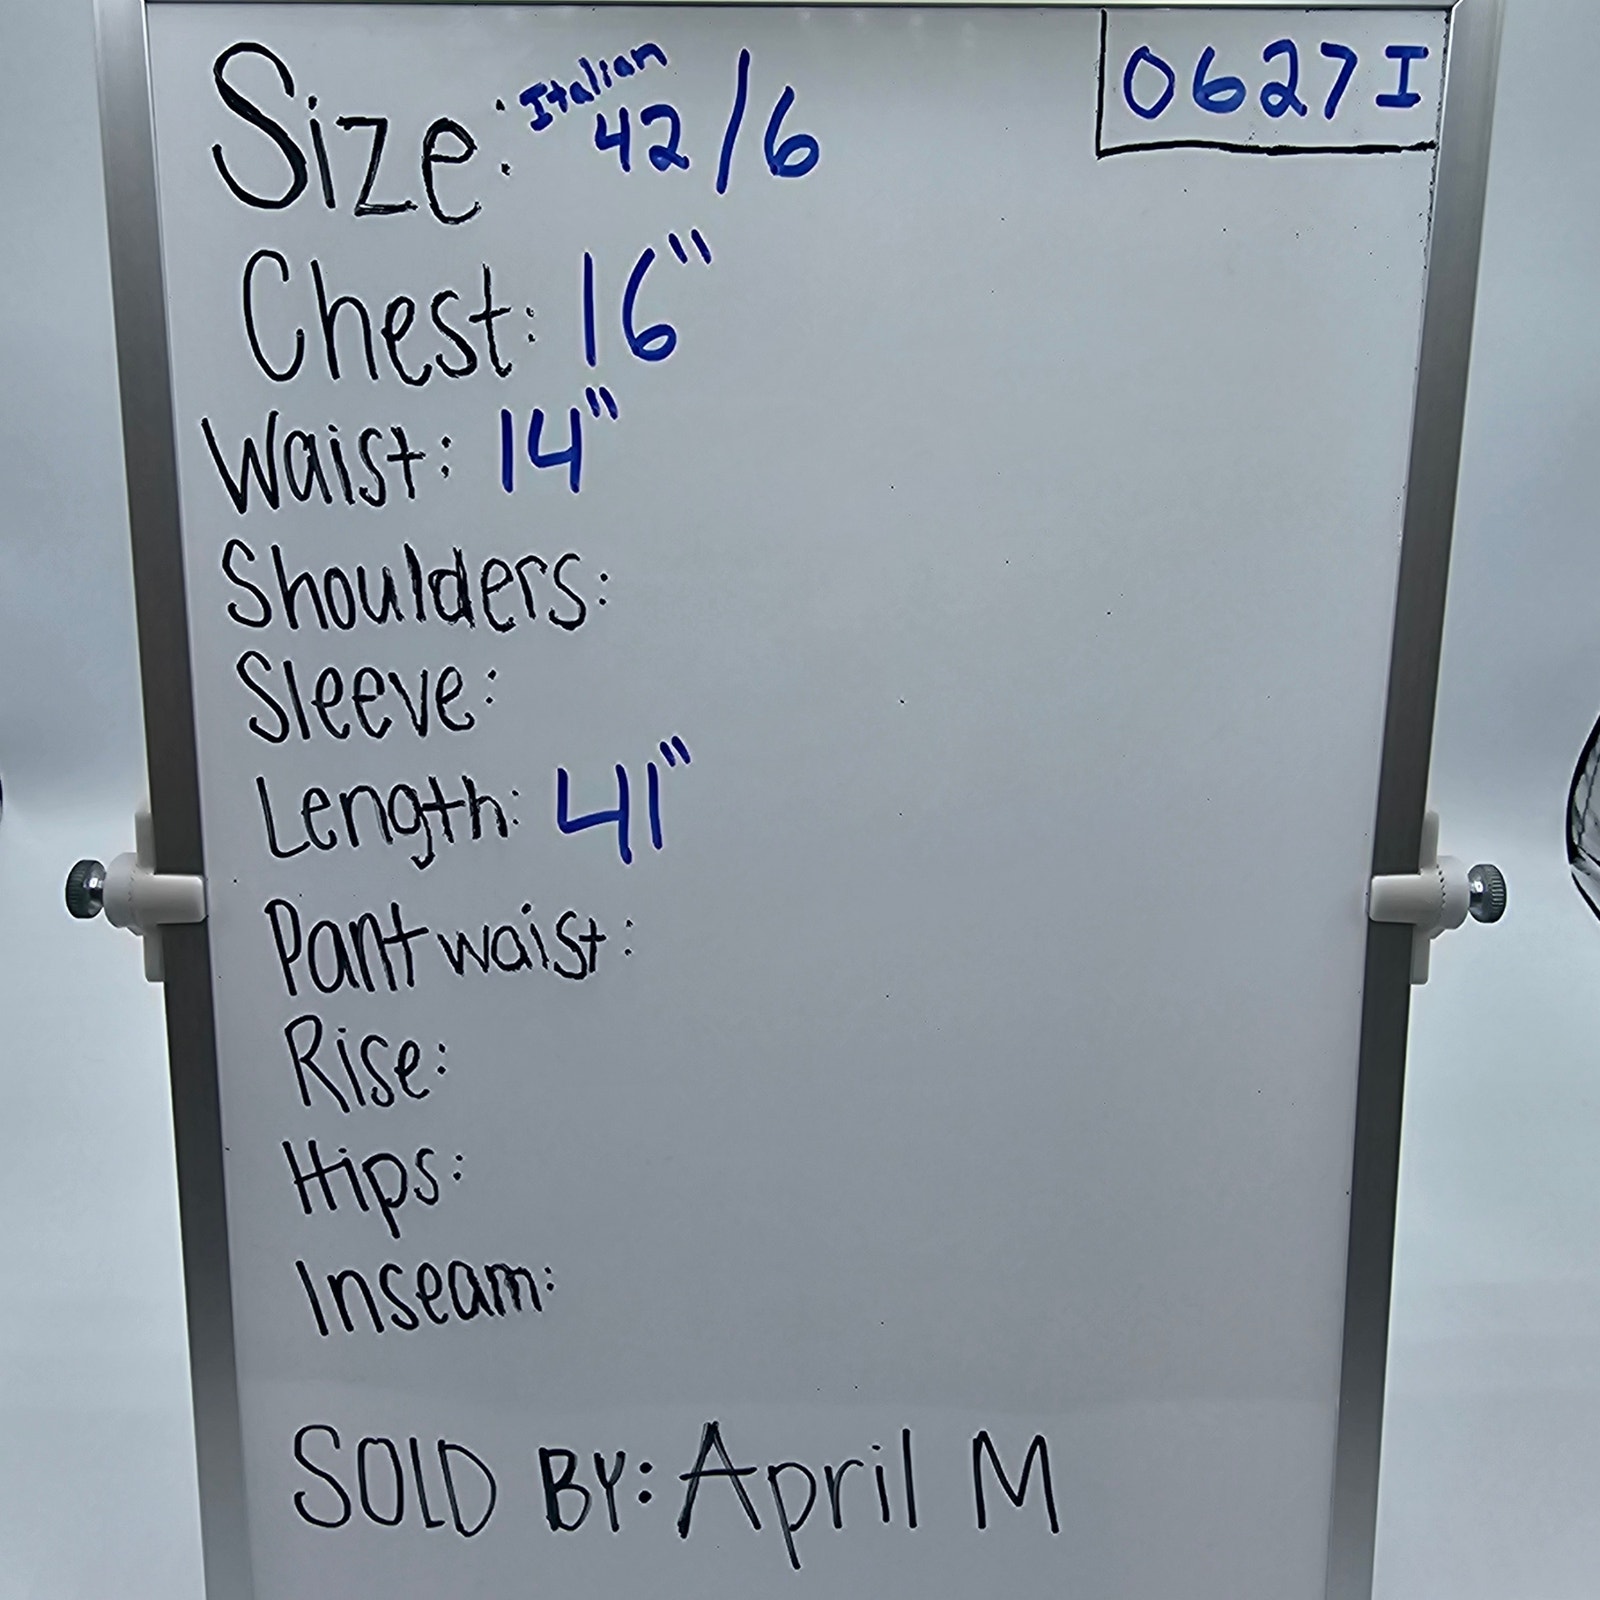 Size: Italian 42/6
0627I
Chest: 16"
Waist: 14"
Shoulders:
Sleeve:
Length: 41"
Pant waist:
Rise:
Hips:
Inseam:
SOLD BY: April M